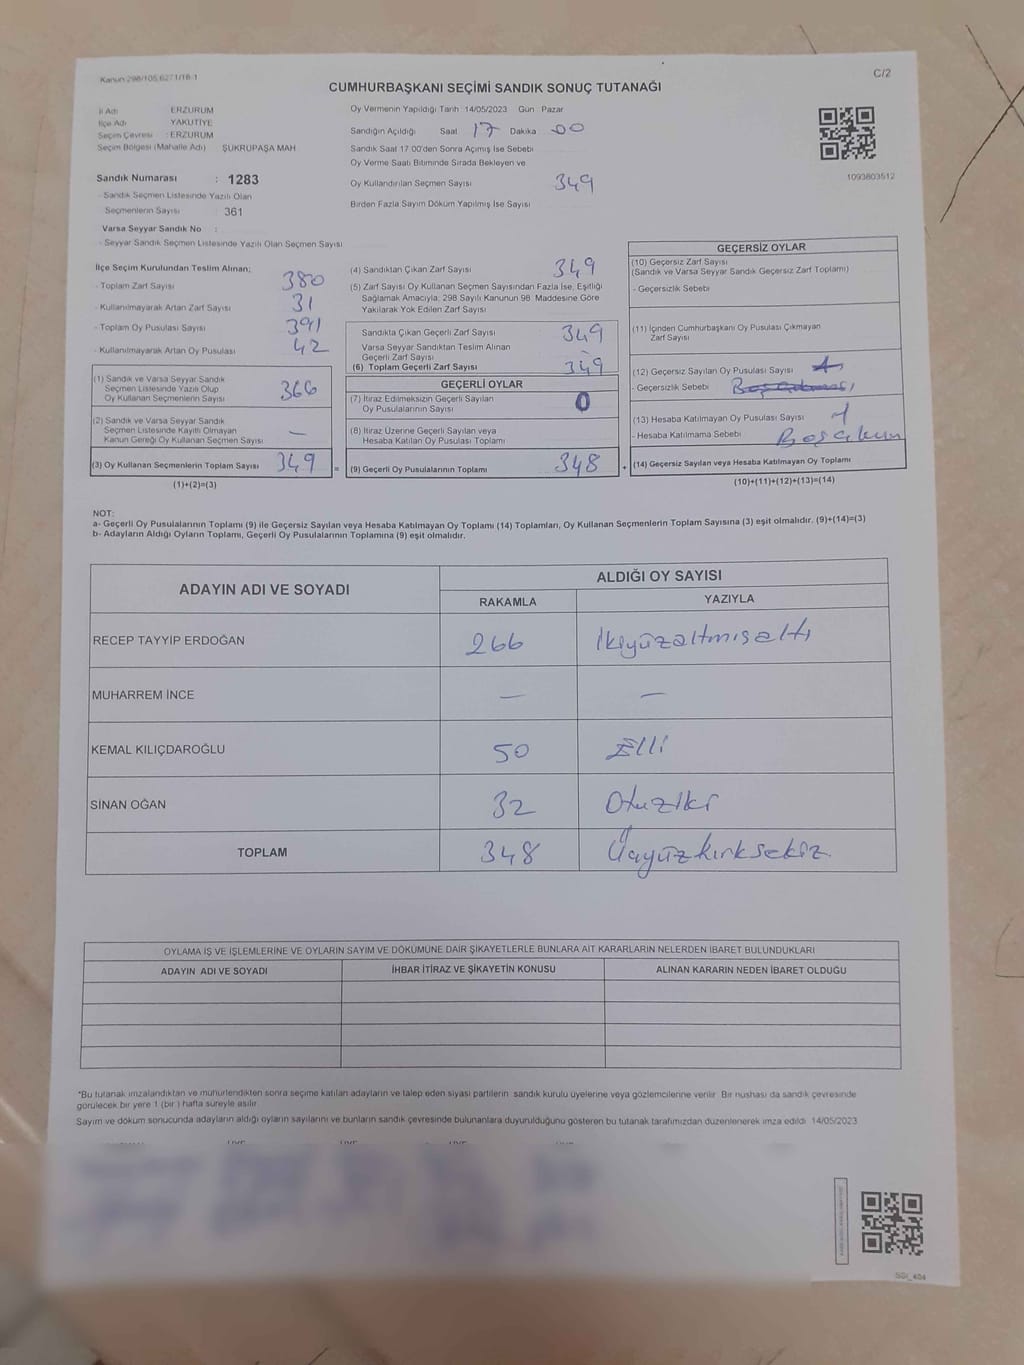 Kanun:298/105,6271/16-1
C/2
CUMHURBAŞKANI SEÇİMİ SANDIK SONUÇ TUTANAĞI
İl Adı : ERZURUM
İlçe Adı : YAKUTİYE
Seçim Çevresi : ERZURUM
Seçim Bölgesi (Mahalle Adı) : ŞÜKRÜPAŞA MAH
Sandık Numarası : 1283
- Sandık Seçmen Listesinde Yazılı Olan
Seçmenlerin Sayısı : 361
Varsa Seyyar Sandık No :
- Seyyar Sandık Seçmen Listesinde Yazılı Olan Seçmen Sayısı
Oy Vermenin Yapıldığı Tarih 14/05/2023 Gün Pazar
Sandığın Açıldığı Saat 17 Dakika 00
Sandık Saat 17:00'den Sonra Açımış İse Sebebi
Oy Verme Saati Bitiminde Sırada Bekleyen ve
Oy Kullandırılan Seçmen Sayısı 349
Birden Fazla Sayım Döküm Yapılmış İse Sayısı
1093803512
İlçe Seçim Kurulundan Teslim Alınan;
- Toplam Zarf Sayısı 380
- Kullanılmayarak Artan Zarf Sayısı 31
- Toplam Oy Pusulası Sayısı 391
- Kullanılmayarak Artan Oy Pusulası 42
(1) Sandık ve Varsa Seyyar Sandık
Seçmen Listesinde Yazılı Olup
Oy Kullanan Seçmenlerin Sayısı 366
(2) Sandık ve Varsa Seyyar Sandık
Seçmen Listesinde Kayıtlı Olmayan
Kanun Gereği Oy Kullanan Seçmen Sayısı —
(3) Oy Kullanan Seçmenlerin Toplam Sayısı 349
(1)+(2)=(3)
(4) Sandıktan Çıkan Zarf Sayısı 349
(5) Zarf Sayısı Oy Kullanan Seçmen Sayısından Fazla İse, Eşitliği
Sağlamak Amacıyla, 298 Sayılı Kanunun 98. Maddesine Göre
Yakılarak Yok Edilen Zarf Sayısı
Sandıkta Çıkan Geçerli Zarf Sayısı 349
Varsa Seyyar Sandıktan Teslim Alınan
Geçerli Zarf Sayısı
(6) Toplam Geçerli Zarf Sayısı 349
GEÇERLİ OYLAR
(7) İtiraz Edilmeksizin Geçerli Sayılan
Oy Pusulalarının Sayısı 0
(8) İtiraz Üzerine Geçerli Sayılan veya
Hesaba Katılan Oy Pusulası Toplamı
= (9) Geçerli Oy Pusulalarının Toplamı 348 +
GEÇERSİZ OYLAR
(10) Geçersiz Zarf Sayısı
(Sandık ve Varsa Seyyar Sandık Geçersiz Zarf Toplamı)
- Geçersizlik Sebebi
(11) İçinden Cumhurbaşkanı Oy Pusulası Çıkmayan
Zarf Sayısı
(12) Geçersiz Sayılan Oy Pusulası Sayısı
- Geçersizlik Sebebi
(13) Hesaba Katılmayan Oy Pusulası Sayısı 1
- Hesaba Katılmama Sebebi
(14) Geçersiz Sayılan veya Hesaba Katılmayan Oy Toplamı
(10)+(11)+(12)+(13)=(14)
NOT:
a- Geçerli Oy Pusulalarının Toplamı (9) ile Geçersiz Sayılan veya Hesaba Katılmayan Oy Toplamı (14) Toplamları, Oy Kullanan Seçmenlerin Toplam Sayısına (3) eşit olmalıdır. (9)+(14)=(3)
b- Adayların Aldığı Oyların Toplamı, Geçerli Oy Pusulalarının Toplamına (9) eşit olmalıdır.
ADAYIN ADI VE SOYADI
ALDIĞI OY SAYISI
RAKAMLA YAZIYLA
RECEP TAYYİP ERDOĞAN 266 İkiyüzaltmışaltı
MUHARREM İNCE — —
KEMAL KILIÇDAROĞLU 50 Elli
SİNAN OĞAN 32 Otuziki
TOPLAM 348 Üçyüzkırksekiz
OYLAMA İŞ VE İŞLEMLERİNE VE OYLARIN SAYIM VE DÖKÜMÜNE DAİR ŞİKAYETLERLE BUNLARA AİT KARARLARIN NELERDEN İBARET BULUNDUKLARI
ADAYIN ADI VE SOYADI İHBAR İTİRAZ VE ŞİKAYETİN KONUSU ALINAN KARARIN NEDEN İBARET OLDUĞU
*Bu tutanak imzalandıktan ve mühürlendikten sonra seçime katılan adayların ve talep eden siyasi partilerin sandık kurulu üyelerine veya gözlemcilerine verilir. Bir nüshası da sandık çevresinde
görülecek bir yere 1 (bir ) hafta süreyle asılır.
Sayım ve döküm sonucunda adayların aldığı oyların sayılarını ve bunların sandık çevresinde bulunanlara duyurulduğunu gösteren bu tutanak tarafımızdan düzenlenerek imza edildi. 14/05/2023